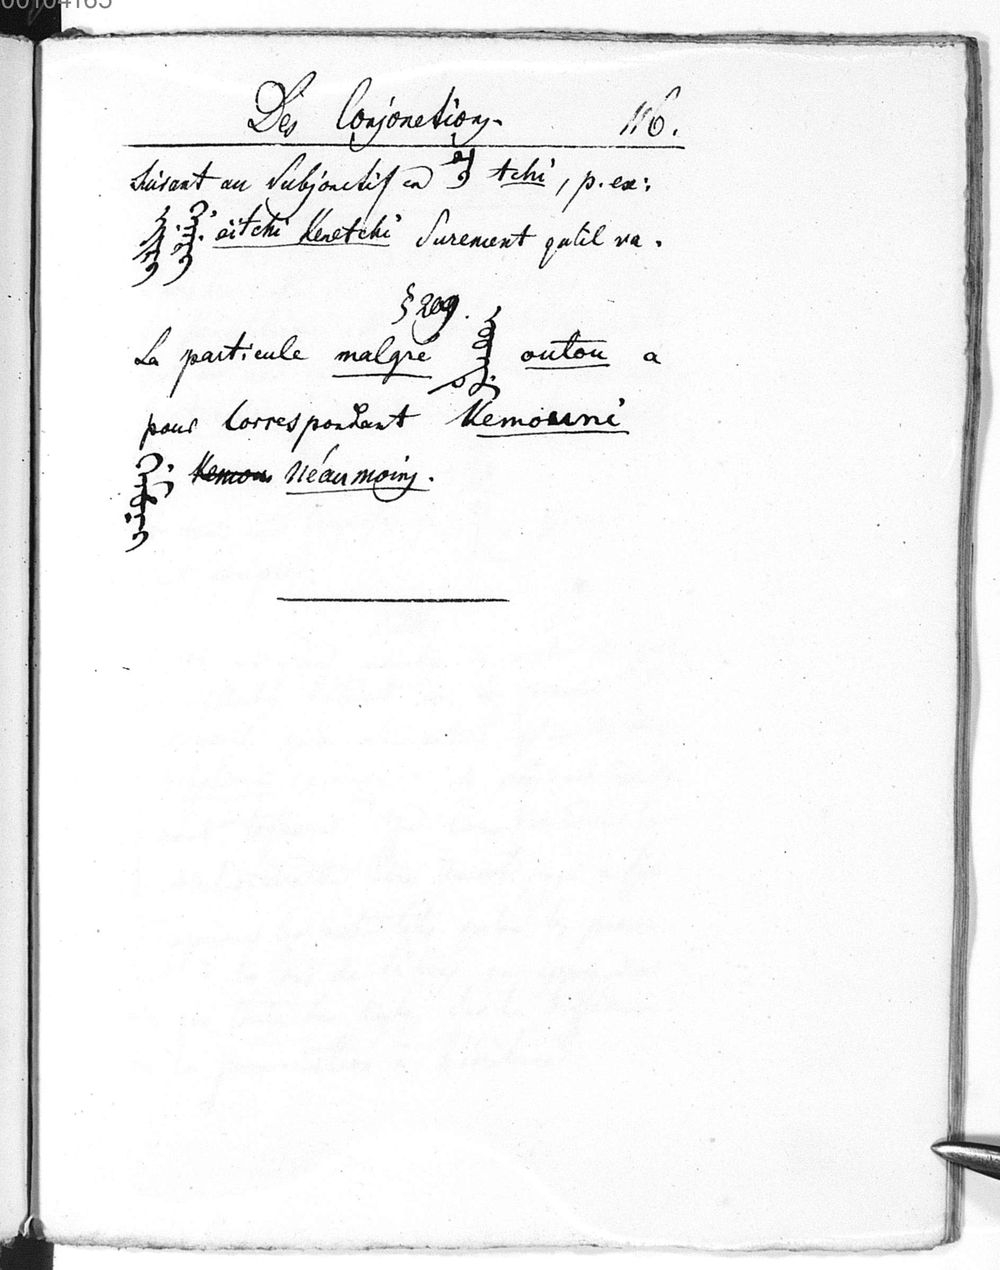 00104165
Des Conjonctions. 116.
suivant au Subjonctif en tchi, p. ex:
aitchi Kenetchi Surement qu'il va.
§ 209.
La particule malgré outou a
pour Correspondant Kemouni
Kemou Néanmoins.